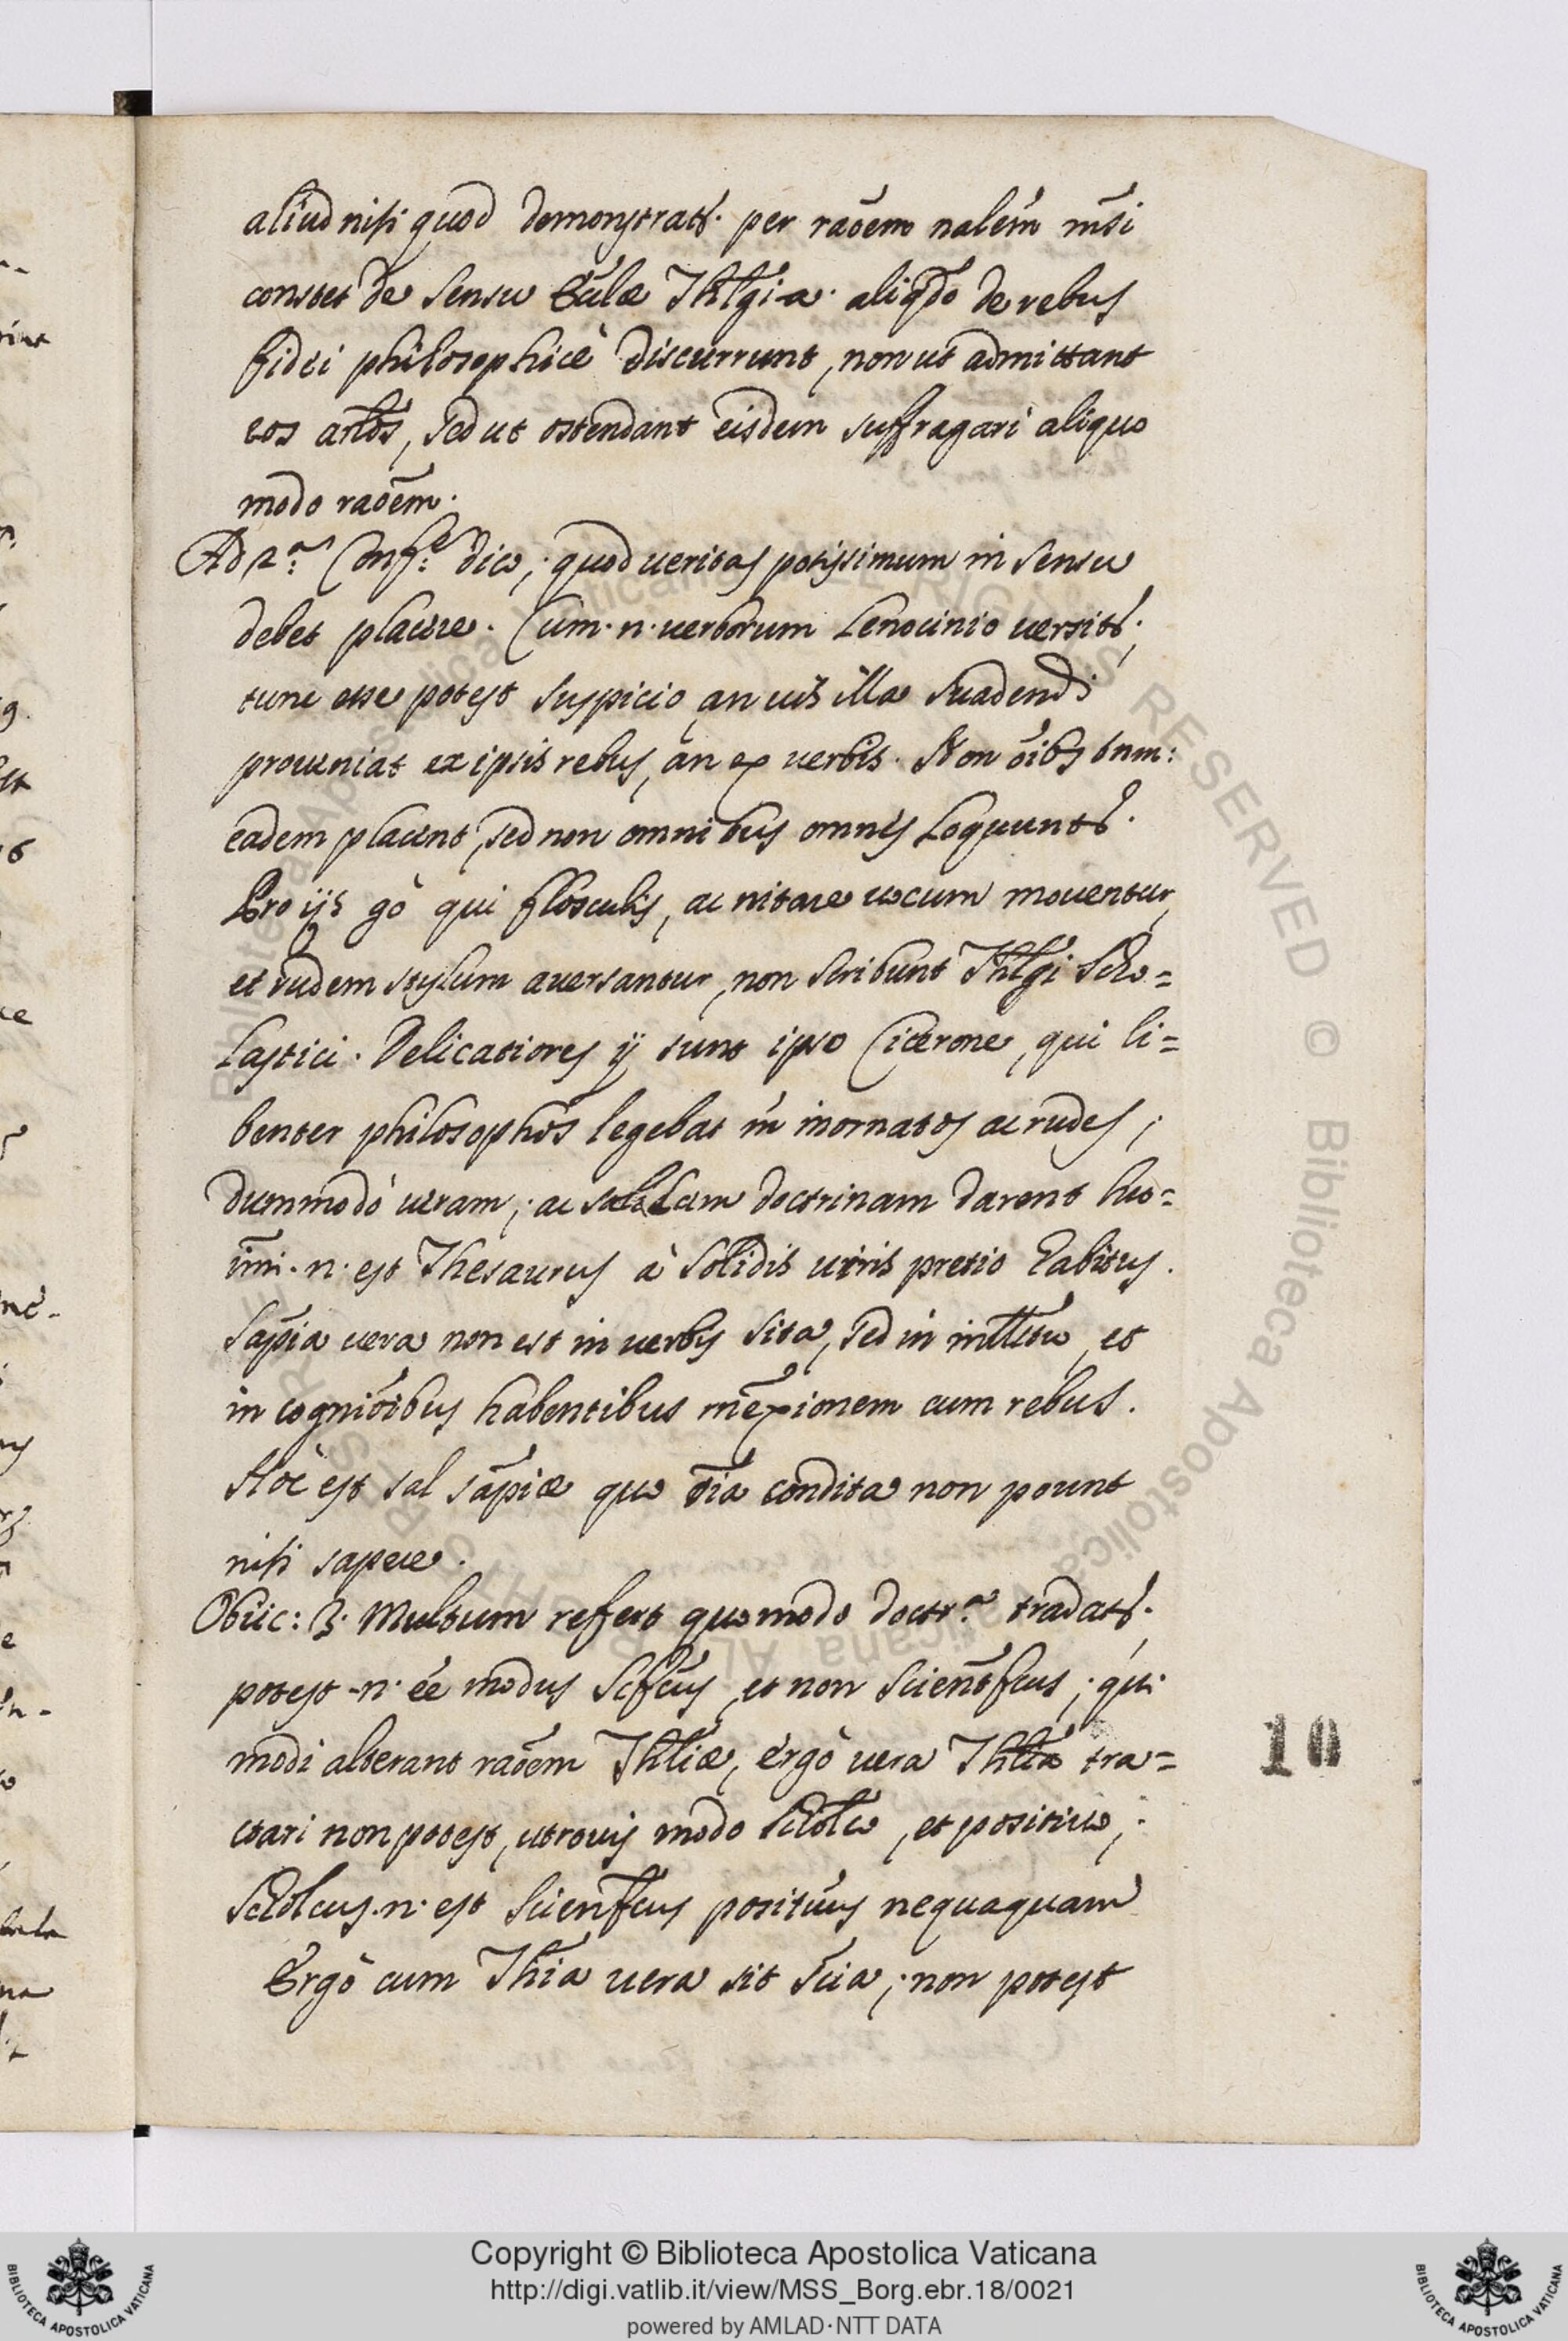 aliud nisi quod demonstratr. per raōem nalém nisi
constet de sensu Eulæ Thlgia. aliqdo de rebus
fidei philosophicè discurrunt, non ut admittant
eos arlos, sed ut ostendant eisdem suffragari aliquo
modo raōem.
Ad 2.ᵃ Conf. dico; quod ueritas potissimum in sensu
debet placere. Cum. n. uerborum Lenocinio uersitr;
tunc esse potest suspicio an uis illa suadendi
proueniat ex ipsis rebus, an ex uerbis. Non óibs tnm:
eadem placent, sed non omnibus omnes Loquuntr.
Pro ijs gò qui flosculis, ac nitore uocum mouentur,
et rudem stylum auersantur, non scribunt Thlgi Scho=
Lastici. Delicatiores ij sunt ipso Cicerone, qui li=
benter philosophos legebat in inornatos ac rudes;
dummodò ueram; ac solidam doctrinam darent huo=
imi. n. est Thesaurus à solidis uiris pretio habitus.
Sapia uera non est in uerbis sita, sed in intlletu, et
in cogniōibus habentibus cum rebus.
Hoc est sal sapiæ quo óia condita non pount
nisi sapere.
Obiic: 3. Multum reffert quomodo doctr.ᵃ tradatr.
potest. n. ée modus Scfcus, et non Scientfcus; qui.
modi alterant raōem Thliæ, ergò uera Thlia tra=
ctari non potest, utrouis modo Schólco, et positiuo;
Schólcus. n. est Scientfcus positiuus nequaquam
Ergò cum Thia uera sit Scia; non potest
10
Biblioteca Apostolica Vaticana
ALL RIGHTS RESERVED © Biblioteca Apostolica Vaticana
Copyright © Biblioteca Apostolica Vaticana
http://digi.vatlib.it/view/MSS_Borg.ebr.18/0021
powered by AMLAD·NTT DATA
BIBLIOTECA APOSTOLICA VATICANA
BIBLIOTECA APOSTOLICA VATICANA